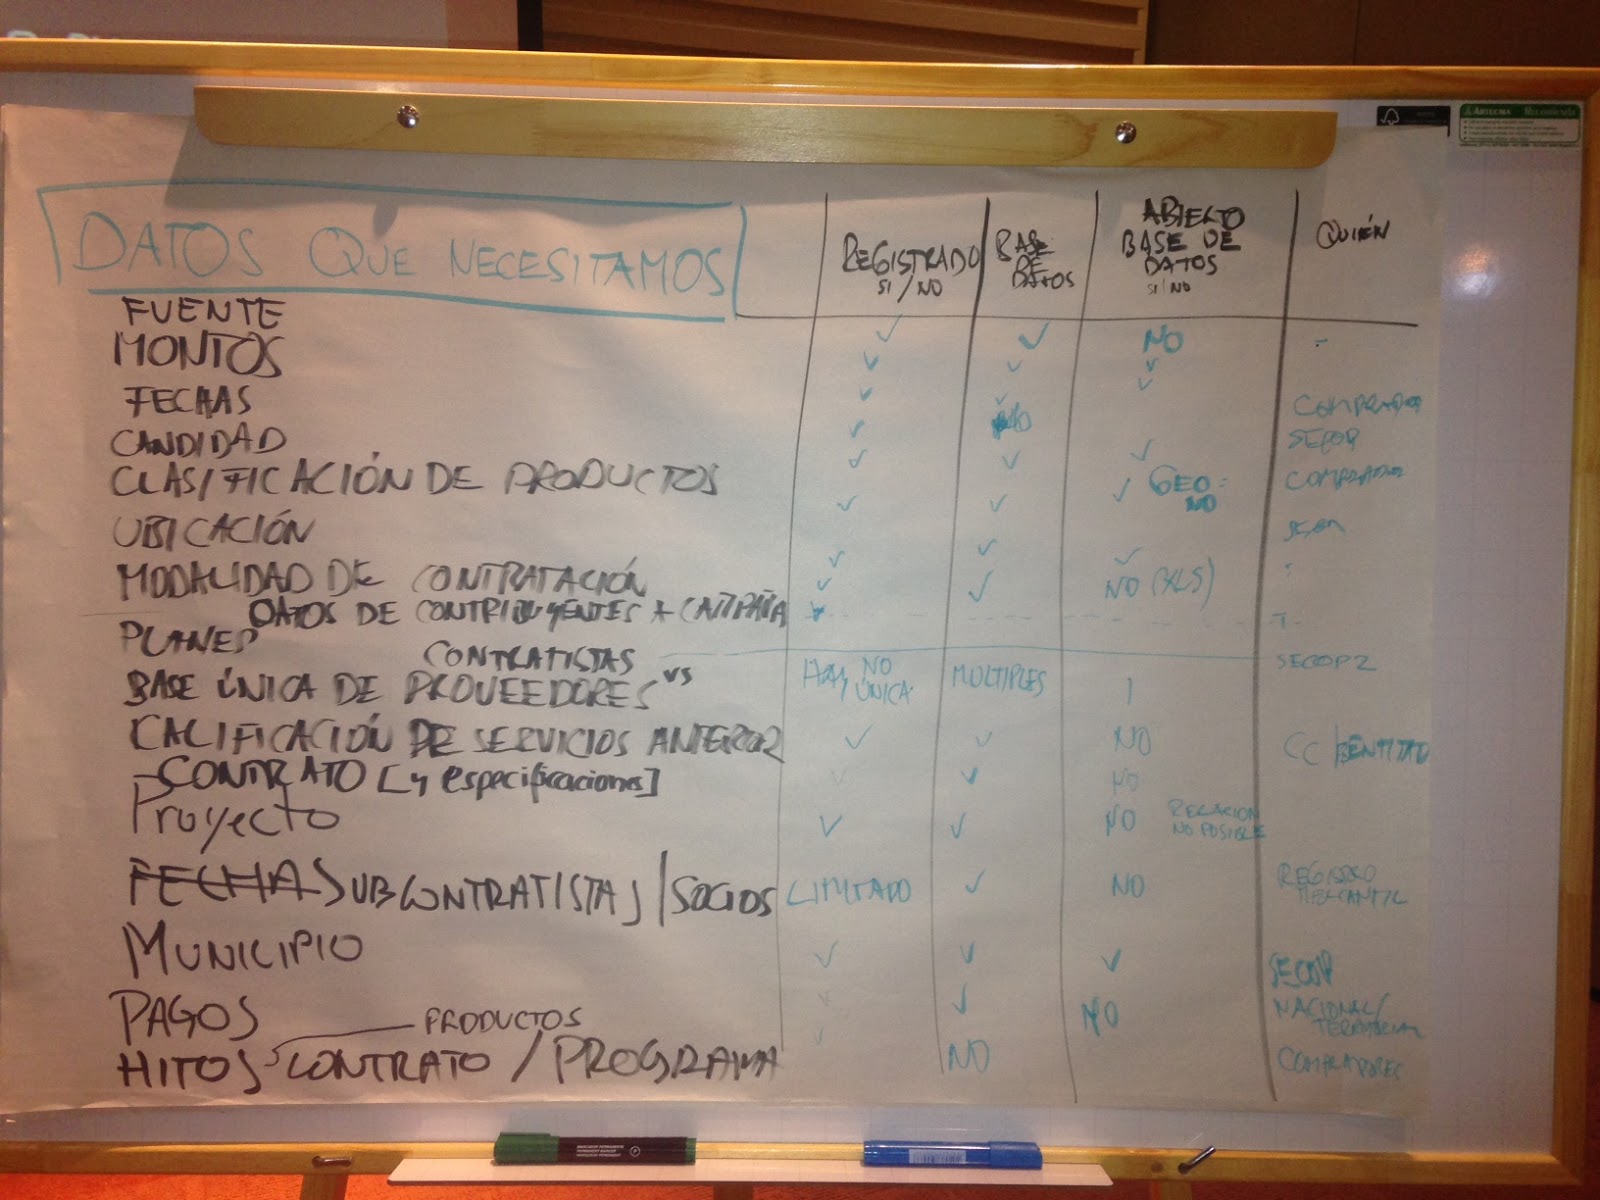 DATOS QUE NECESITAMOS
REGISTRADO SI/NO
BASE DE DATOS
ABIERTO BASE DE DATOS SI/NO
QUIÉN
FUENTE ✓ ✓ NO -
MONTOS ✓ ✓ ✓
FECHAS ✓ ✓ ✓ COMPRADOR
CANDIDAD ✓ NO SECOP
CLASIFICACIÓN DE PRODUCTOS ✓ ✓ ✓ COMPRADOR
UBICACIÓN ✓ ✓ ✓ GEO: NO
MODALIDAD DE CONTRATACIÓN ✓ ✓ ✓
DATOS DE CONTRIBUYENTES + CAMPAÑA
PLANES ✓ ✓ NO (XLS)
CONTRATISTAS SECOP2
BASE ÚNICA DE PROVEEDORES VS HAY, NO ÚNICA MULTIPLES
CALIFICACIÓN DE SERVICIOS ANTERIOR ✓ ✓ NO CC / ENTITAD
CONTRATO [y especificaciones] ✓ ✓ NO
Proyecto ✓ ✓ NO RELACION NO POSIBLE
FECHA SUBCONTRATISTAS / SOCIOS LIMITADO ✓ NO REGISTRO MERCANTIL
MUNICIPIO ✓ ✓ ✓ SECOP
PAGOS ✓ ✓ NO NACIONAL/ TERRITORIAL
PRODUCTOS
HITOS CONTRATO / PROGRAMA ✓ NO COMPRADORES